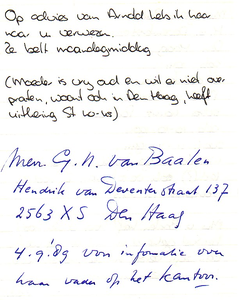 Op advies van Arnold heb ik haar
naar u verwezen.
Ze belt maandagmiddag
(Moeder is erg oud en wil er niet over
praten, woont ook in Den Haag, heeft
uitkering
Mevr. G. N. van Baalen
Hendrik van Deventerstraat 137
2563 XS Den Haag
4.9.'89 voor informatie over
haar vader op het kantoor.